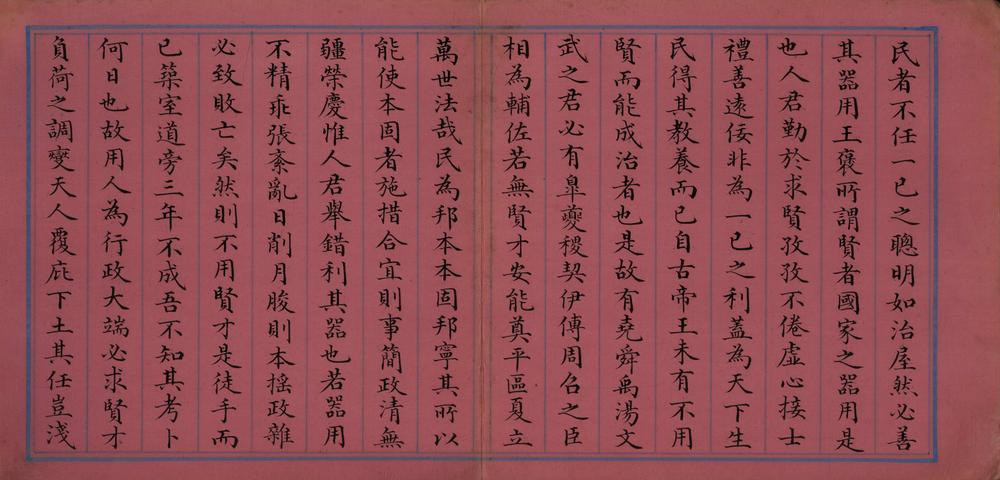 民者不任一已之聰明如治屋然必善
其器用王褒所謂賢者國家之器用是
也人君勤於求賢孜孜不倦虛心接士
禮善遠佞非為一已之利蓋為天下生
民得其教養而已自古帝王未有不用
賢而能成治者也是故有堯舜禹湯文
武之君必有臯夔稷契伊傅周召之臣
相為輔佐若無賢才安能奠平區夏立
萬世法哉民為邦本本固邦寧其所以
能使本固者施措合宜則事簡政清無
疆榮慶惟人君舉錯利其器也若器用
不精乖張紊亂日削月朘則本搖政雜
必致敗亡矣然則不用賢才是徒手而
已築室道旁三年不成吾不知其考卜
何日也故用人為行政大端必求賢才
負荷之調燮天人覆庇下土其任豈淺